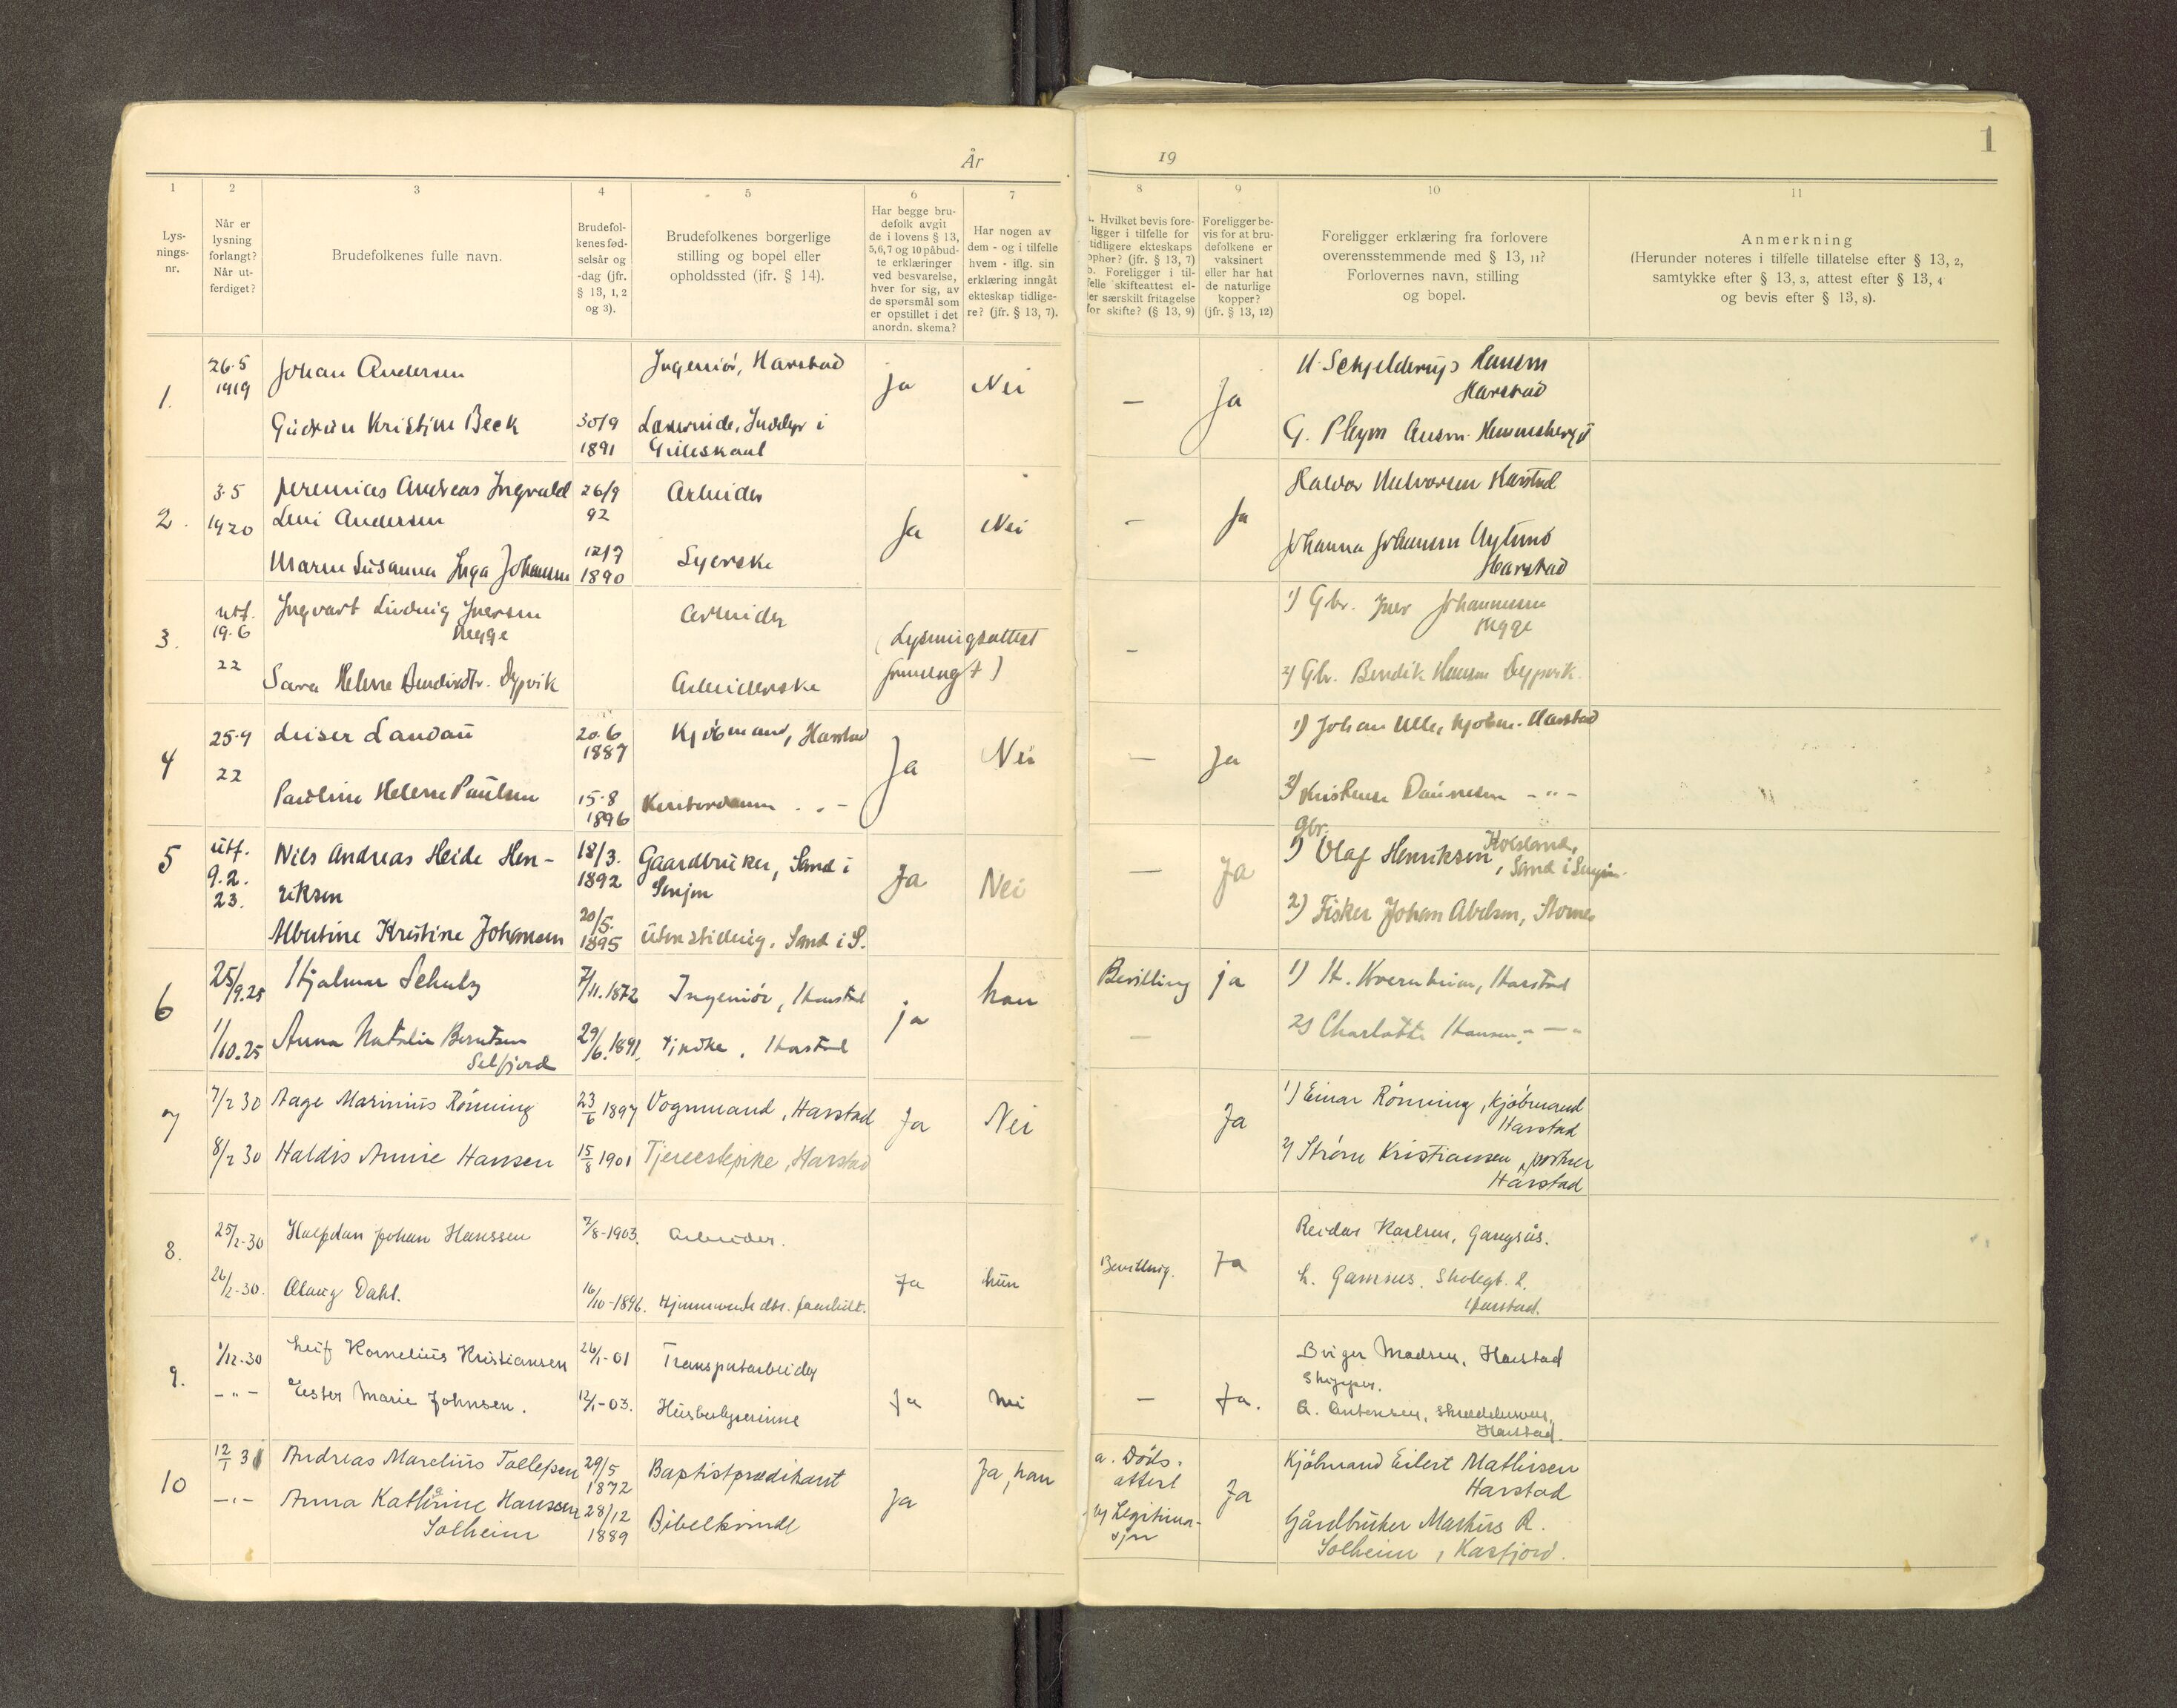 År
19
1
1
2
3
4
5
6
7
8
9
10
11
Lys-
nings-
nr.
Når er
lysning
forlangt?
Når ut-
ferdiget?
Brudefolkenes fulle navn.
Brudefol-
kenes fød-
selsår og
-dag (jfr.
§ 13, 1, 2
og 3).
Brudefolkenes borgerlige
stilling og bopel eller
opholdssted (ifr. § 14).
Har begge bru-
defolk avgit
de i lovens § 13,
5,6,7 og 10 påbud-
te erklæringer
ved besvarelse,
hver for sig, av
de spørsmål som
er opstillet i det
anordn. skema?
Har nogen av
dem - og i tilfelle
hvem - iflg. sin
erklæring inngåt
ekteskap tidlige-
re? (jfr. § 13, 7).
Hvilket bevis fore-
ligger i tilfelle for
tidligere ekteskaps
ophør? (jfr. § 13, 7)
b. Foreligger i til-
felle skifteattest el-
ler særskilt fritagelse
for skifte? (§ 13, 9)
Foreligger be-
vis for at bru-
defolkene er
vaksinert
eller har hat
de naturlige
kopper?
(jfr. § 13, 12)
Foreligger erklæring fra forlovere
overensstemmende med § 13, 11?
Forlovernes navn, stilling
og bopel.
Anmerkning
(Herunder noteres i tilfelle tillatelse efter § 13, 2,
samtykke efter § 13, 3, attest efter § 13, 4
og bevis efter § 13, 8).
1.
26.5
1919
Johan Andersen
Ingeniør, Harstad
Ja
Nei
—
Ja
H. Schjelderup Hansen
Harstad
Gudrun Kristine Beck
30/9
1891
Lærerinde, Inndyr i
Gilleskaal
G. Pleym
2.
3.5
1920
Jeremias Andreas Ingvald
Leui Andersen
26/9
92
Arbeider
Ja
Nei
—
Ja
Haldor Halvorsen Harstad
Maren Susanna Inga Johansen
12/7
1890
Syerske
Johanna Johansen
Harstad
3.
utf.
19.6
22
Ingvart Ludvig Iversen
Regge
Arbeider
(Lysningsattest
fremlagt)
—
1) Gbr. Iver Johannesen
Regge
Sara Helene Bendiksdtr. Dypvik
Arbeiderske
2) Gbr. Bendik Hansen Dypvik.
4
25.9
22
Leiser Landau
20.6
1887
Kjøbmand, Harstad
Ja
Nei
—
Ja
1) Johan Ulle, kjøbm. Harstad
Pauline Helene Paulsen
15.8
1896
Kontordame - " -
2) Kristense - " -
5
utf.
9.2.
23.
Nils Andreas Heide Hen-
riksen
18/3.
1892
Gaardbruker, Sand i
Senjen
Ja
Nei
—
Ja
gbr.
1) Olaf Henriksen, Sand i Senjen.
Albertine Kristine Johansen
20/5.
1895
uten stilling, Sand i S.
2) Fisker Johan Abelsen, Stornes
6
25/9.25
Hjalmar Schulz
7/11.1872
Ingeniør, Harstad
ja
han
Bevilling
ja
1) H. Kvernheim, Harstad
1/10.25
Anna Natalie Berntsen
Selfjord
29/6.1891.
Harstad
—
2) Charlotte Hansen, " — "
7
7/2 30
Aage Marinius Rönning
23/6 1897
Vognmand, Harstad
Ja
Nei
Ja
1) Einar Rönning, kjöbmand
Harstad
8/2 30
Haldis Annie Hansen
15/8 1901
Tjenestepike, Harstad
2) Strøm Kristiansen, portner
Harstad
8.
25/2-30
Halfdan Johan Hanssen
7/8-1903.
Arbeider.
Ja
hun
Bevilling.
Ja
Reidar Karlsen, Gangsås.
26/2-30.
Olaug Dahl.
16/10-1896.
h. Gamnes. Skolegt. 2.
Harstad.
9.
1/12-30
Leif Kornelius Kristiansen
26/1-01
Transportarbeider
Ja
nei
—
Ja.
Birger Madsen, Harstad
Skipper.
- " -
Ester Marie Johnsen.
12/1-03.
Husbestyrerinne
A. Antonsen,
Harstad.
10
12/1 31
Andreas Marelius Tollefsen
29/5
1872
Baptistprædikant
Ja
Ja, han
a. Döds-
attest
b) Legitima-
sjon
Ja
Kjöbmand Eilert Mathisen
Harstad
- " -
Anna Kathrine Hanssen
Solheim
28/12
1889
Bibelkvinde
Gårdbruker Markus R.
Solheim, Kasfjord.